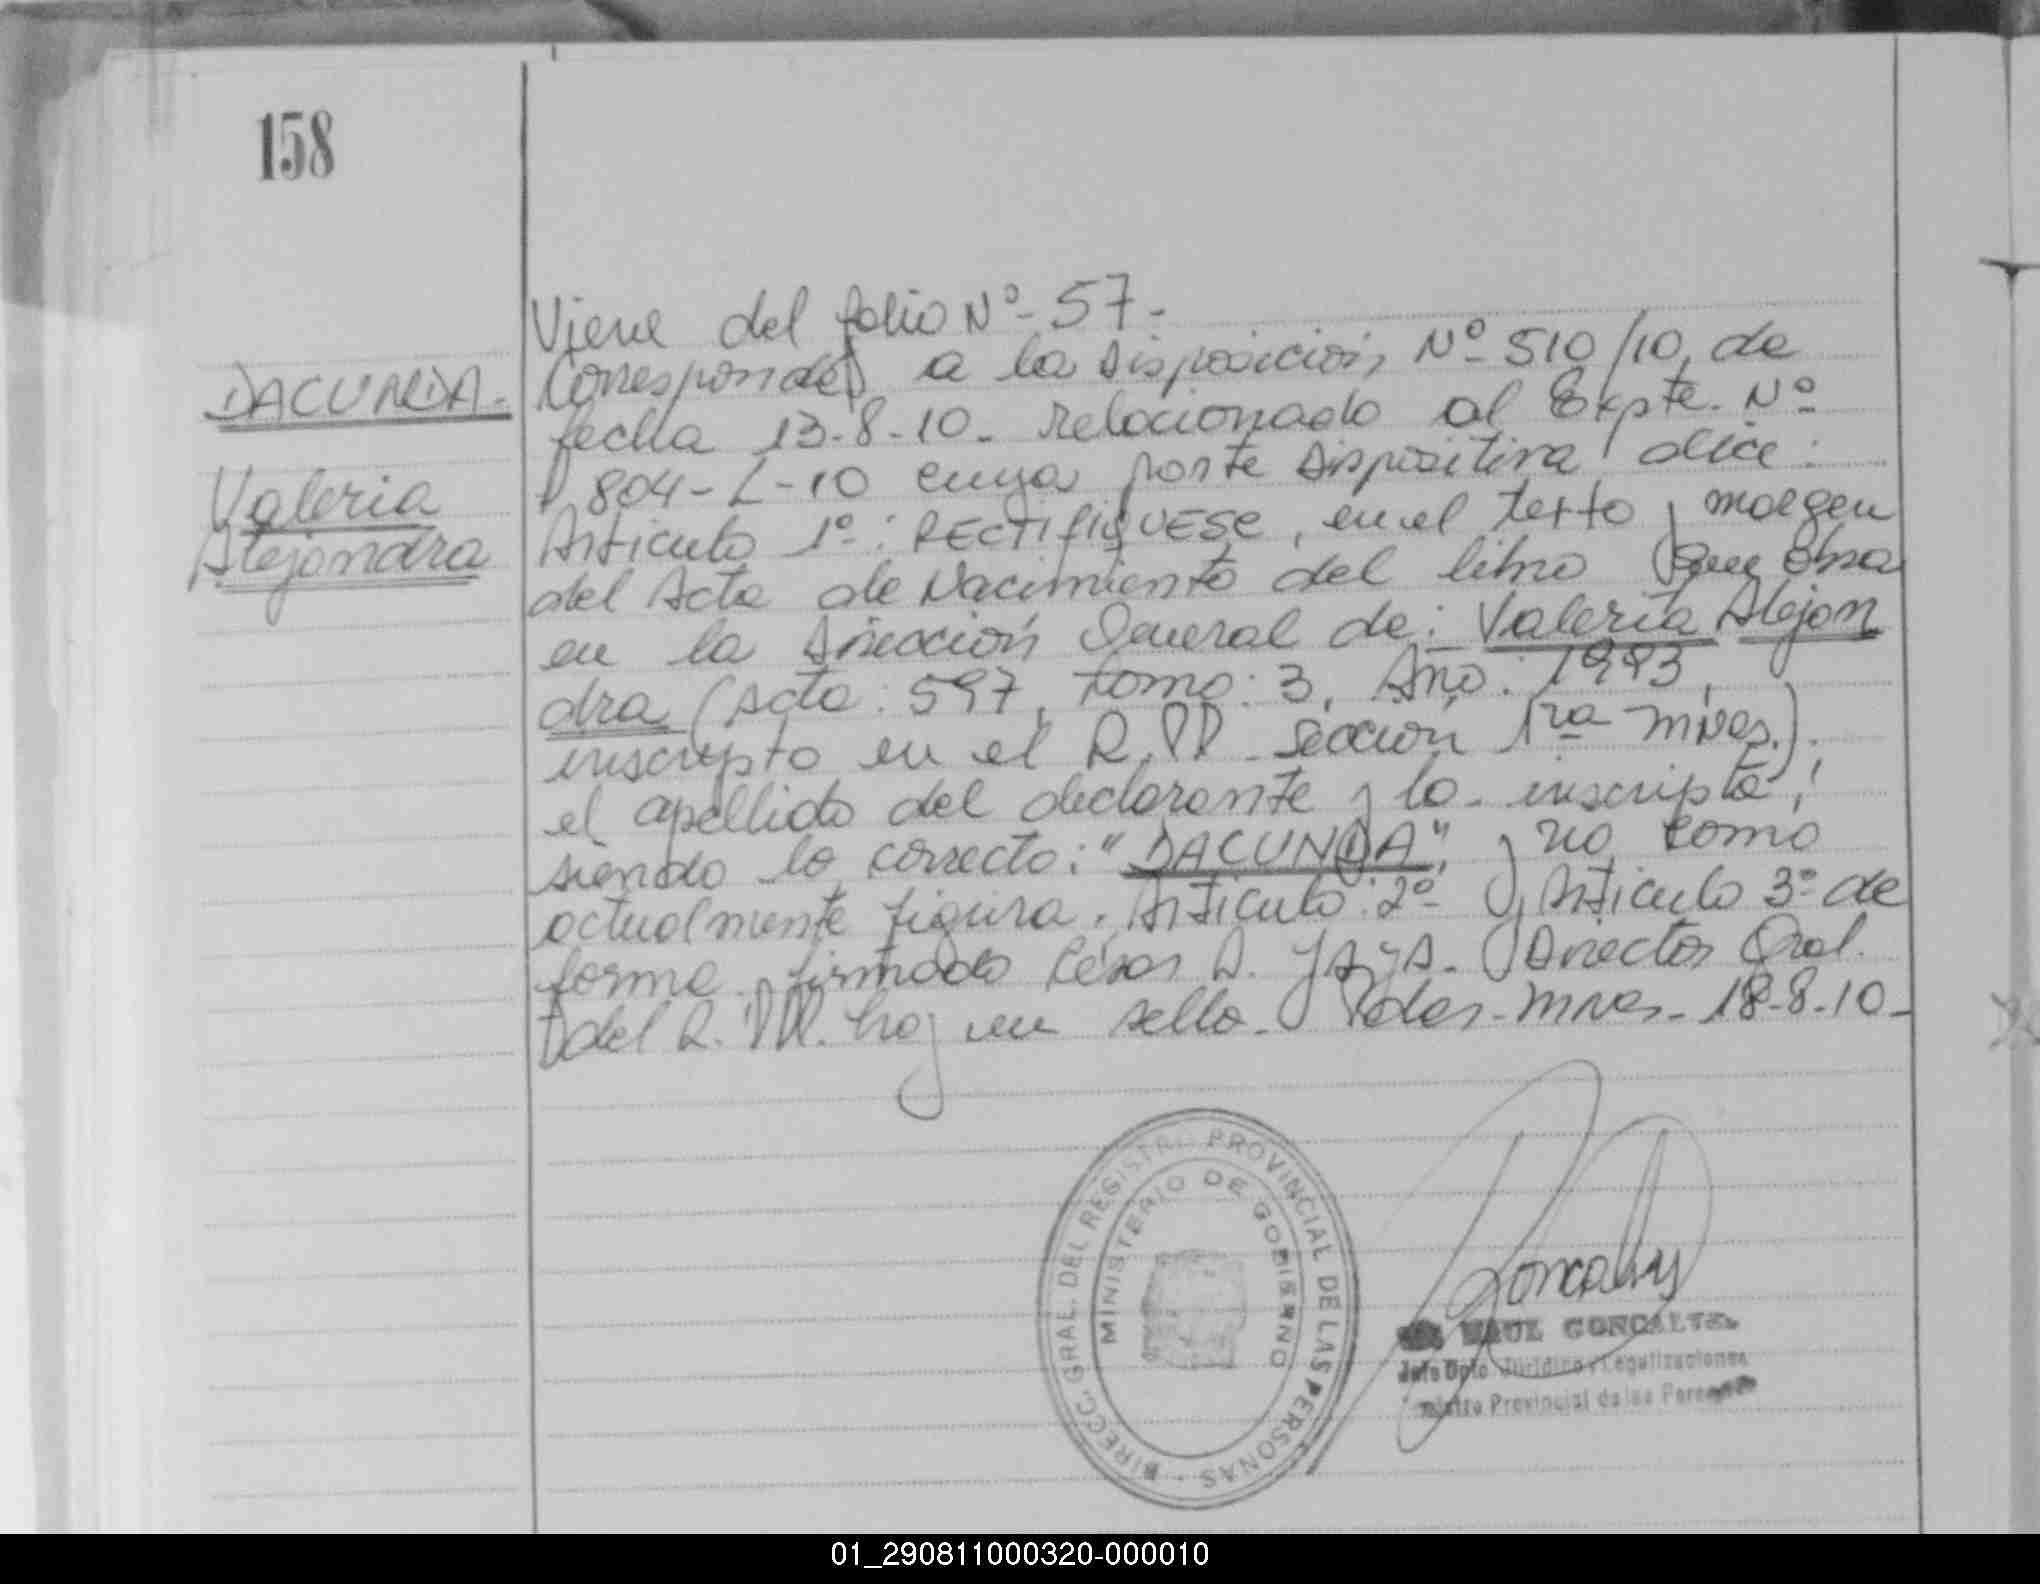 158
DACUNDA.
Valeria
Alejandra
Viene del folio Nº 57.
Corresponde a la Disposición Nº 510/10, de
fecha 13-8-10. relacionado al Expte. Nº
804-L-10 cuya parte Dispositiva dice:
Articulo 1º: RECTIFIQUESE, en el texto y margen
del Acta de Nacimiento del libro que obra
en la Dirección General de: Valeria Alejan
dra (Acta: 597, tomo: 3, Año: 1993,
inscripto en el R.PP. sección 1ra Mnes.).
el apellido del declarante y la inscripta,
siendo lo correcto: "DACUNDA", y no como
actualmente figura. Articulo: 2º y Articulo 3º de
forma. firmado César A. Director Gral.
del R. PP. hay un sello. Pdas-Mnes- 18-8-10-
DIRECC. GRAL. DEL REGISTRO PROVINCIAL DE LAS PERSONAS
MINISTERIO DE GOBIERNO
RAUL GONCALVES
Jefe Dpto Jurídico y Legalizaciones
Provincial de las Personas
01_290811000320-000010